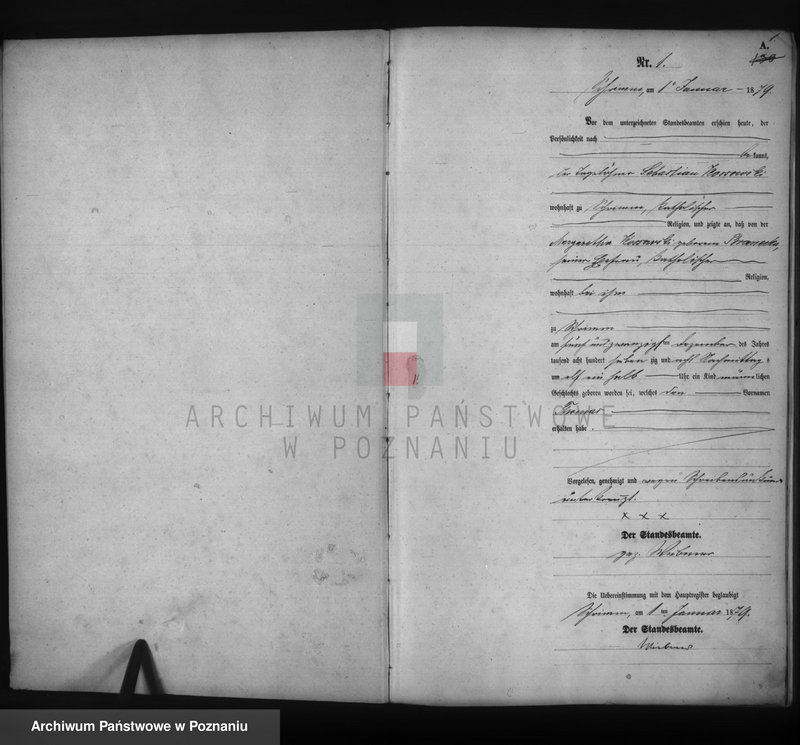 A.
Nr. 1.
Schrimm, am 1 Januar 1879.
Vor dem unterzeichneten Standesbeamten erschien heute, der
Persönlichkeit nach
be kannt,
der Tagelöhner Sebastian
wohnhaft zu Schrimm, katholischer
Religion, und zeigte an, daß von der
Margaretha geborene
seiner Ehefrau, katholischer
Religion,
wohnhaft bei ihm
zu Schrimm
am fünf und zwanzigsten Dezember des Jahres
tausend acht hundert sieben zig und acht Nachmittag s
um elf ein halb Uhr ein Kind männlichen
Geschlechts geboren worden sei, welches den Vornamen
erhalten habe.
Vorgelesen, genehmigt und wegen Schreibensunkunde
unterkreuzt.
x x x
Der Standesbeamte.
gez.
Die Uebereinstimmung mit dem Hauptregister beglaubigt
Schrimm, am 1 ten Januar 1879.
Der Standesbeamte.
ARCHIWUM PAŃSTWOWE
W POZNANIU
Archiwum Państwowe w Poznaniu